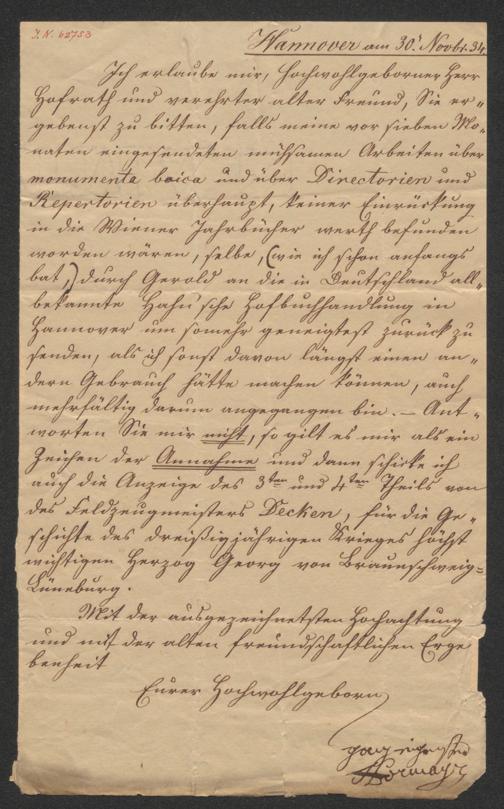 I.N. 62753
Hannover am 30t Novbr. 34.
Ich erlaube mir, Hochwohlgeborner Herr
Hofrath und verehrter alter Freund, Sie er=
gebenst zu bitten, falls meine vor sieben Mo=
naten eingesendeten mühsamen Arbeiten über
monumenta boica und über Directorien und
Repertorien überhaupt, keiner Einrückung
in die Wiener Jahrbücher werth befunden
worden wären, selbe, (wie ich schon anfangs
bat,) durch Gerold an die in Deutschland all=
bekannte Hahn'sche Hofbuchhandlung in
Hannover um somehr geneigtest zurück zu
senden, als ich sonst davon längst einen an=
dern Gebrauch hätte machen können, auch
mehrfältig darum angegangen bin. — Ant=
worten Sie mir nicht, so gilt es mir als ein
Zeichen der Annahme und dann schicke ich
auch die Anzeige des 3ten und 4ten Theils von
des Feldzeugmeisters Decken, für die Ge=
schichte des dreißigjährigen Krieges höchst
wichtigen Herzog Georg von Braunschweig=
Lüneburg.
Mit der ausgezeichnetsten Hochachtung
und mit der alten freundschaftlichen Erge
benheit
Eurer Hochwohlgeborn
ganz eigenster
Hormayr